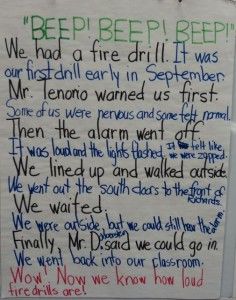 "BEEP! BEEP! BEEP!"
We had a fire drill. It was
our first drill early in September.
Mr. Tenorio warned us first.
Some of us were nervous and some felt normal.
Then the alarm went off.
It was loud and the lights flashed. It felt like
we were zapped.
We lined up and walked outside.
We went out the south doors to the front of
Richards.
We waited.
We were outside, but we could still hear the alarm.
Finally, Mr. D. said we could go in.
We went back into our classroom.
Wow! Now we know how loud
fire drills are!